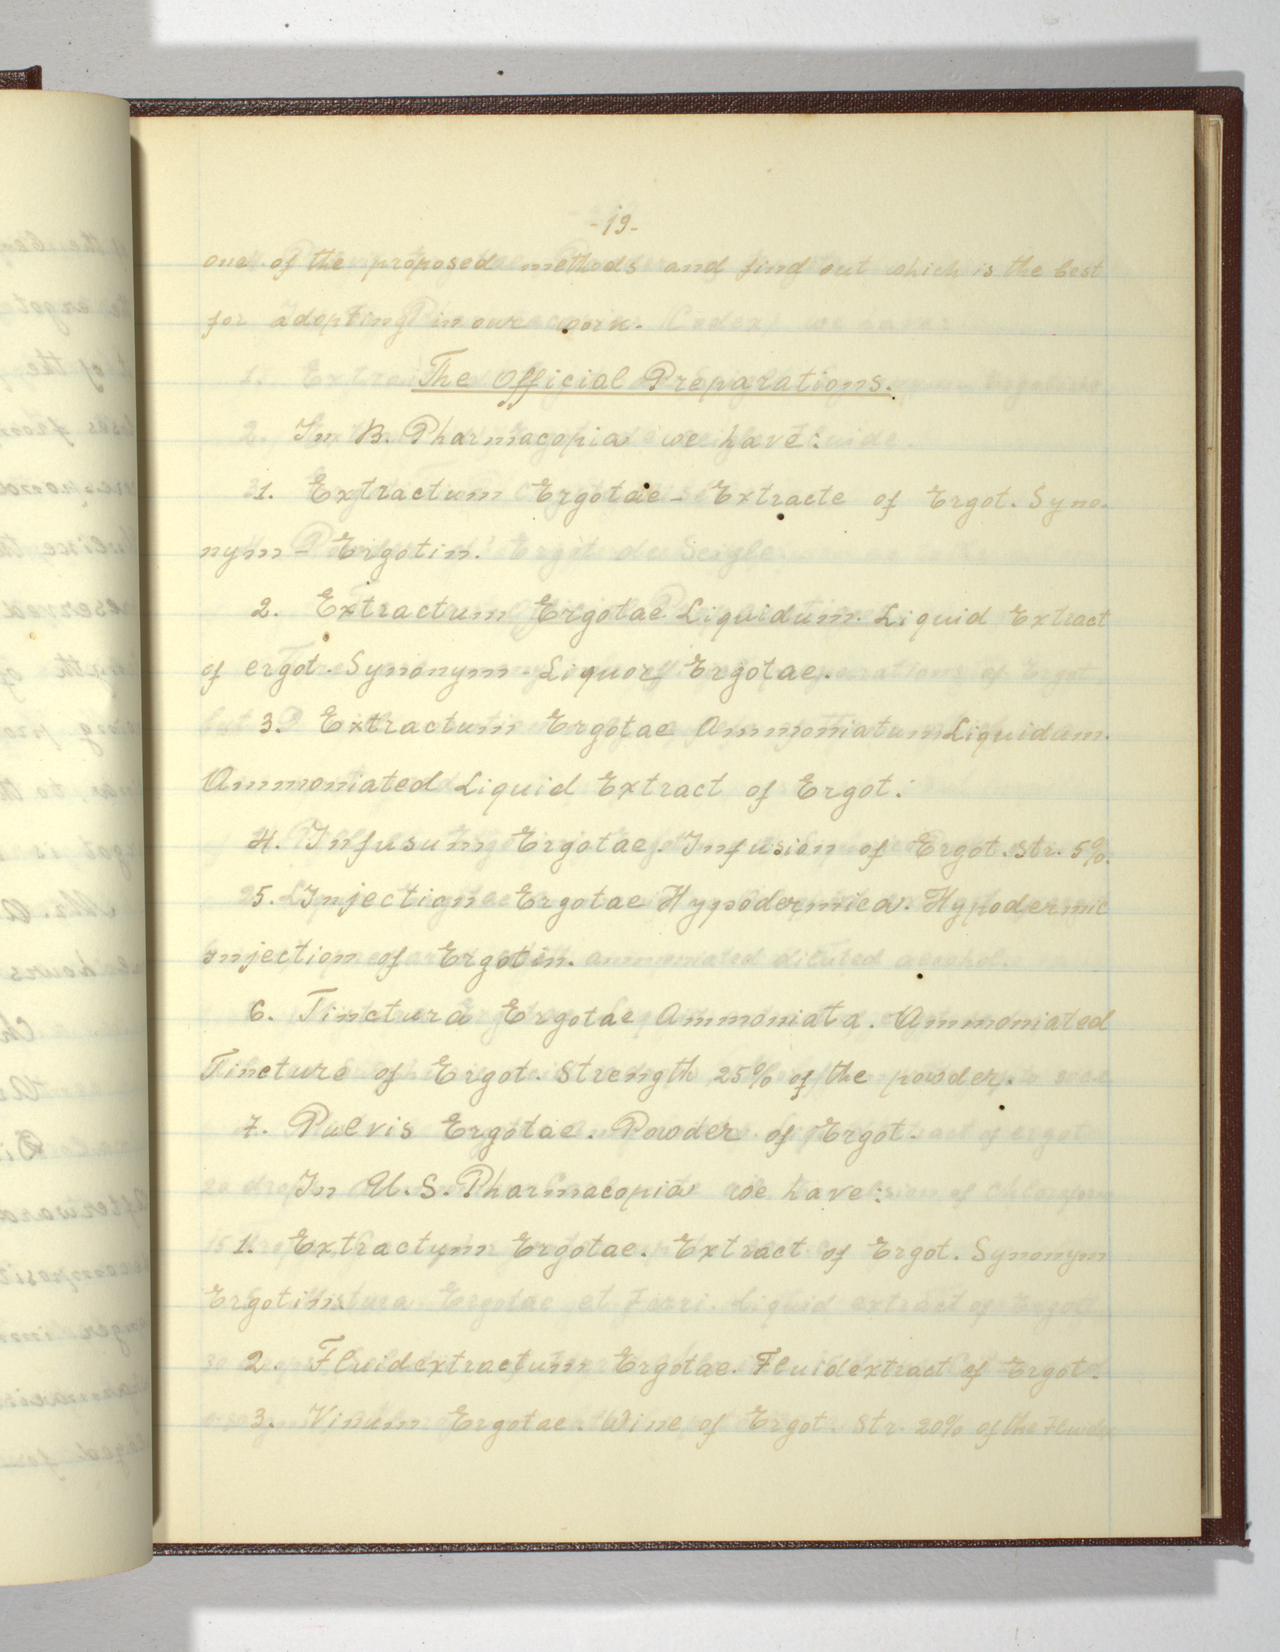 -19-
one of the proposed methods and find out which is the best
for adopting in our work.
The Official Preparations.
In B. Pharmacopia we have:
1. Extractum Ergotae - Extracte of Ergot. Syno-
nym - Ergotin.
2. Extractum Ergotae Liquidum. Liquid Extract
of ergot. Synonym - Liquor Ergotae.
3. Extractum Ergotae Ammoniatum Liquidum.
Ammoniated Liquid Extract of Ergot.
4. Infusum Ergotae. Infusion of Ergot. Str. 5%.
5. Injectione Ergotae Hypodermica. Hypodermic
injection of Ergotin.
6. Tinctura Ergotae Ammoniata. Ammoniated
Tincture of Ergot. Strength 25% of the powder.
7. Pulvis Ergotae. Powder of Ergot.
In U.S. Pharmacopia we have:
1. Extractum Ergotae. Extract of Ergot. Synonym
Ergotin.
2. Fluidextractum Ergotae. Fluidextract of Ergot.
3. Vinum Ergotae. Wine of Ergot. Str. 20% of the